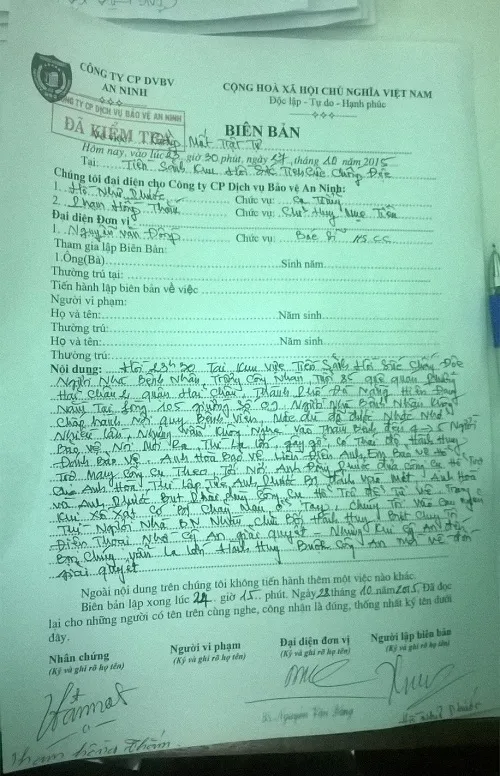 CÔNG TY CP DVBV
AN NINH
CỘNG HOÀ XÃ HỘI CHỦ NGHĨA VIỆT NAM
Độc lập - Tự do - Hạnh phúc
CÔNG TY CP DỊCH VỤ BẢO VỆ AN NINH
ĐÃ KIỂM TRA
BIÊN BẢN
Về việc: Mất Trật Tự
Hôm nay, vào lúc 23 giờ 30 phút, ngày 27 tháng 10 năm 2015
Tại: Tiền Sảnh Khu Hồi Sức Tích Cực Chống Độc
Chúng tôi đại diện cho Công ty CP Dịch vụ Bảo vệ An Ninh:
1. Hồ Như Phước Chức vụ: Ca Trưởng
2. Phạm Hồng Thắm Chức vụ: Chỉ Huy Mục Tiêu
Đại diện Đơn vị
1. Nguyễn Văn Đông Chức vụ: Bác Sĩ HSCC
Tham gia lập Biên Bản:
1.Ông(Bà) Sinh năm
Thường trú tại:
Tiến hành lập biên bản về việc
Người vi phạm:
Họ và tên: Năm sinh
Thường trú:
Họ và tên: Năm sinh
Thường trú:
Nội dung: Hồi 23h30 Tại Khu Vực Tiền Sảnh Hồi Sức Chống Độc
Người Nhà Bệnh Nhân Trương Công Nhân Tuổi 85 quê quán Phường
Hải Châu 1, quận Hải Châu, Thành Phố Đà Nẵng Hiện Đang
Nằm Tại phòng 105 giường Số 02 Người Nhà Bệnh Nhân Không
Chấp hành Nội quy Bệnh Viện, Mặc dù đã được Nhắc Nhở
Nhiều lần, Nhưng Vẫn Không Nghe Vào Thăm Bệnh đợi 4 → 5 Người
Bảo vệ
Đánh Bảo Vệ. Anh Hòa Bảo Vệ Liền Điện Anh Em Bảo Vệ Hỗ
Trợ Mang Công Cụ Theo, Tới Nơi Anh Phước đưa Công Cụ Hỗ Trợ
Cho Anh Hòa Thì Lập Tức Anh Phước Bị Đánh Vào Mặt, Anh Hòa
và Anh Phước Buộc Phải Dùng Công Cụ Hỗ Trợ Để Tự Vệ. Trong
Khi Xô Xát Có Bị Chảy Máu ở Tay, Chúng Tôi
Thì Người Nhà BN Nhân Chửi Bới Hành Hung. Buộc Chúng Tôi
Điện Thoại Nhờ Công An giải quyết. Nhưng Khi Công An đến
Bọn Chúng vẫn La lớn Hành Hung Buộc Công An Mời về đồn
giải quyết
Ngoài nội dung trên chúng tôi không tiến hành thêm một việc nào khác.
Biên bản lập xong lúc 24 giờ 15 phút. Ngày 28 tháng 10 năm 2015. Đã đọc
lại cho những người có tên trên cùng nghe, công nhận là đúng, thống nhất ký tên dưới
đây.
Nhân chứng Người vi phạm Đại diện đơn vị Người lập biên bản
(Ký và ghi rõ họ tên) (Ký và ghi rõ họ tên) (Ký và ghi rõ họ tên) (Ký và ghi rõ họ tên)
Bs. Nguyễn Văn Đông Hồ Như Phước
Phạm Hồng Thắm